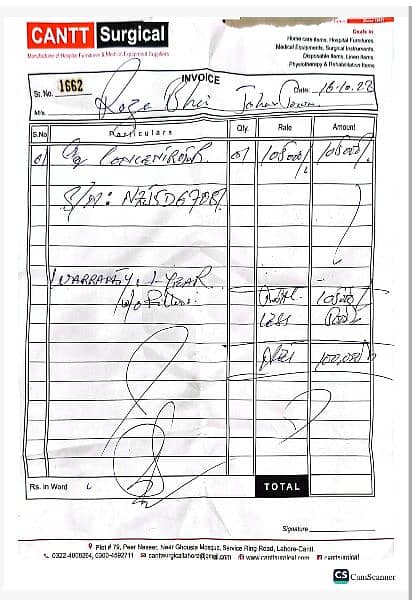 CANTT Surgical
Manufacture of Hospital Furnitures & Medical Equipment Suppliers
Deals in
Home care items, Hospital Furnitures,
Medical Equipments, Surgical Instruments,
Disposable Items, Linen Items,
Physiotherapy & Rehabilitation Items
INVOICE
Sr. No. 1662
Date: 16-10-22
M/s.
S.No Particulars Qty. Rate Amount
01 CONCENTRATOR 01 105000/ 105000/
WARRANTY 1-YEAR
LESS
100,000/
Rs. in Word
TOTAL
Signature
Plot # 79, Peer Naseer, Near Ghousia Mosque, Service Ring Road, Lahore-Cantt.
0322-4008264, 0300-4592711 canttsurgicallahore@gmail.com www.canttsurgical.com canttsurgical
CS CamScanner